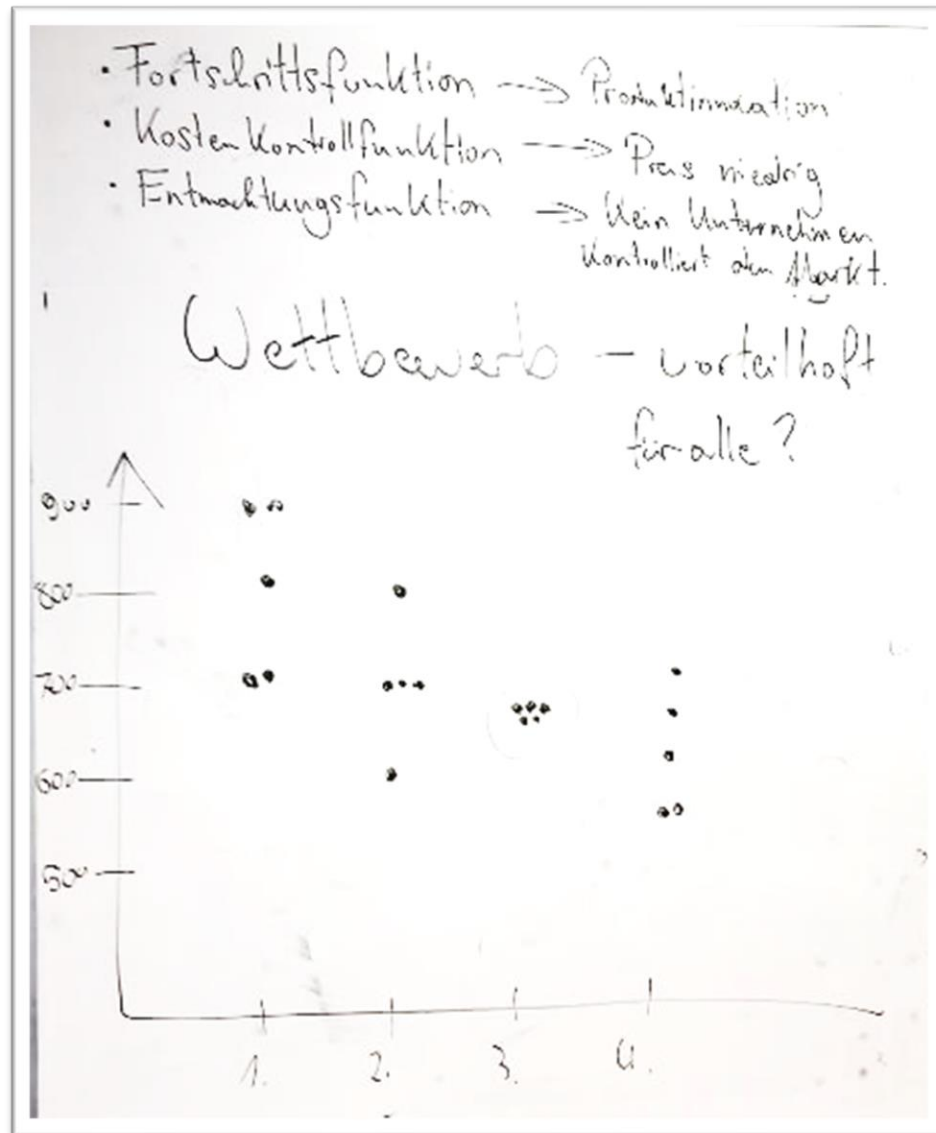 • Fortschrittsfunktion → Produktinnovation
• Kostenkontrollfunktion → Preis niedrig
• Entmachtungsfunktion → Kein Unternehmen
kontrolliert den Markt.
Wettbewerb – vorteilhaft
für alle?
900
800
700
600
500
1. 2. 3. 4.